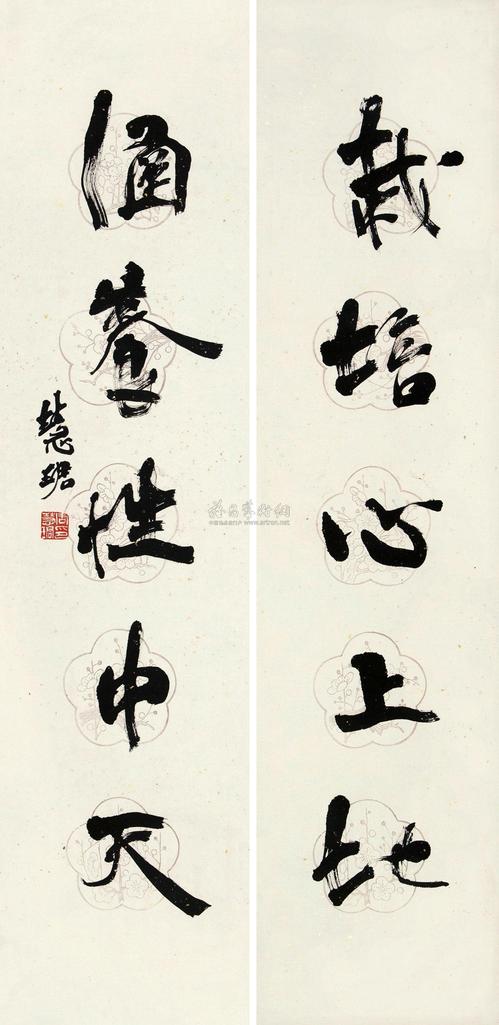 栽培心上地
涵養性中天
慧珺
雅昌藝術網
www.artron.net